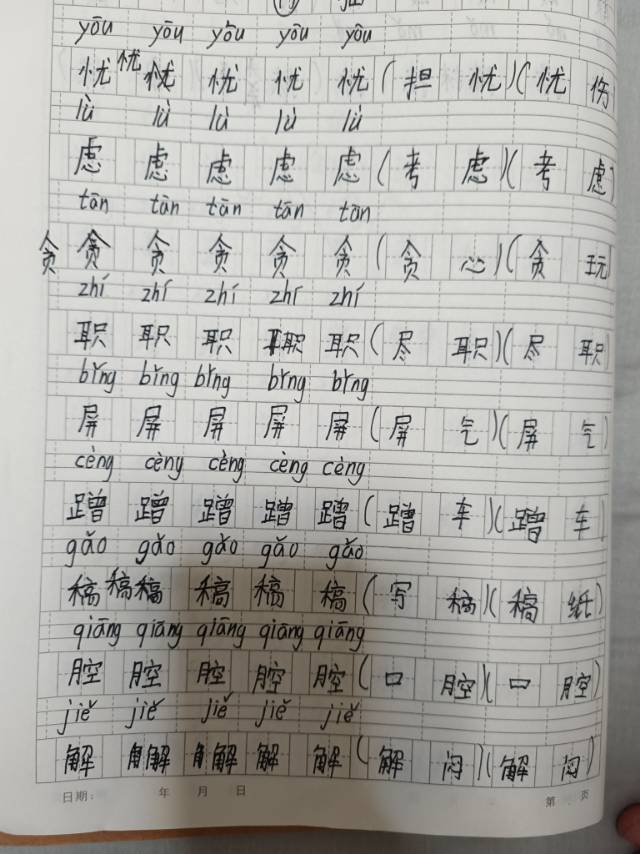 yōu yōu yōu yōu yōu
忧 忧 忧 忧 忧 忧(担 忧)(忧 伤)
lǜ lǜ lǜ lǜ lǜ
虑 虑 虑 虑 虑(考 虑)(考 虑)
tān tān tān tān tān
贪 贪 贪 贪 贪 贪(贪 心)(贪 玩)
zhí zhí zhí zhí zhí
职 职 职 职 职(尽 职)(尽 职)
bǐng bǐng bǐng bǐng bǐng
屏 屏 屏 屏 屏(屏 气)(屏 气)
cèng cèng cèng cèng cèng
蹭 蹭 蹭 蹭 蹭(蹭 车)(蹭 车)
gǎo gǎo gǎo gǎo gǎo
稿 稿 稿 稿 稿 稿(写 稿)(稿 纸)
qiāng qiāng qiāng qiāng qiāng
腔 腔 腔 腔 腔(口 腔)(口 腔)
jiě jiě jiě jiě jiě
解 解 解 解 解(解 闷)(解 闷)
日期: 年 月 日 第 页